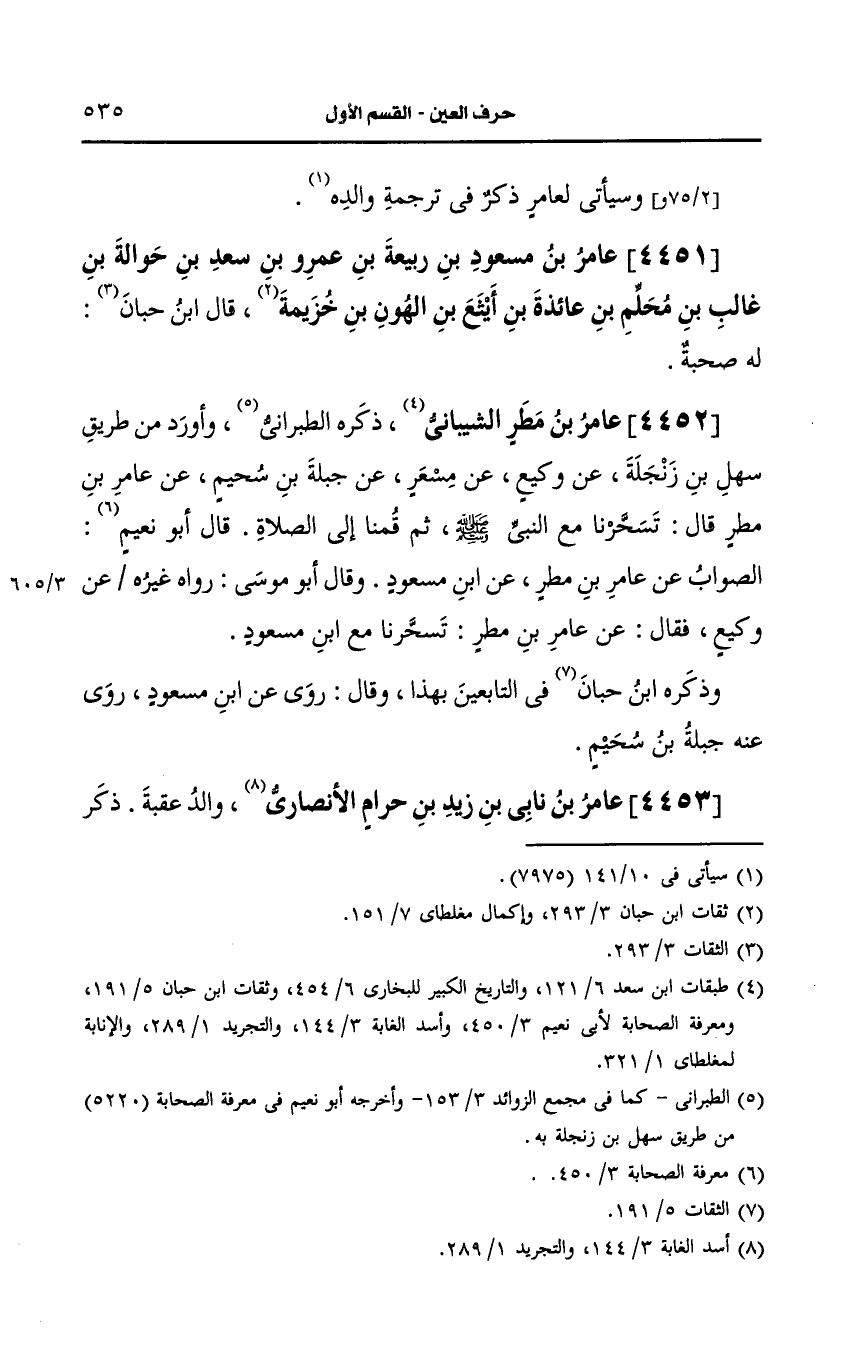 حرف العين - القسم الأول ٥٣٥
[٧٥/٢و] وسيأتى لعامرٍ ذكرٌ فى ترجمةِ والدِه(١) .
[٤٤٥١] عامرُ بنُ مسعودِ بنِ ربيعةَ بنِ عمرِو بنِ سعدِ بنِ حَوالةَ بنِ
غالبِ بنِ مُحَلِّمِ بنِ عائذةَ بنِ أَيْثَعَ بنِ الهُونِ بنِ خُزَيمةَ(٢) ، قال ابنُ حبانَ(٣) :
له صحبةٌ .
[٤٤٥٢] عامرُ بنُ مَطَرٍ الشيبانىُّ(٤) ، ذكَره الطبرانىُّ(٥) ، وأورَد من طريقِ
سهلِ بنِ زَنْجَلَةَ ، عن وكيعٍ ، عن مِسْعَرٍ ، عن جبلةَ بنِ سُحيمٍ ، عن عامرِ بنِ
مطرٍ قال : تَسَحَّرْنا مع النبىِّ ﷺ ، ثم قُمنا إلى الصلاةِ . قال أبو نعيمٍ(٦) :
الصوابُ عن عامرِ بنِ مطرٍ ، عن ابنِ مسعودٍ . وقال أبو موسَى : رواه غيرُه / عن ٦٠٥/٣
وكيعٍ ، فقال : عن عامرِ بنِ مطرٍ : تَسحَّرنا مع ابنِ مسعودٍ .
وذكَره ابنُ حبانَ(٧) فى التابعينَ بهذا ، وقال : روَى عن ابنِ مسعودٍ ، روَى
عنه جبلةُ بنُ سُحَيْمٍ .
[٤٤٥٣] عامرُ بنُ نابِى بنِ زيدِ بنِ حرامٍ الأنصارىُّ(٨) ، والدُ عقبةَ . ذكَر
(١) سيأتى فى ١٤١/١٠ (٧٩٧٥).
(٢) ثقات ابن حبان ٣/ ٢٩٣، وإكمال مغلطاى ٧/ ١٥١.
(٣) الثقات ٣/ ٢٩٣.
(٤) طبقات ابن سعد ٦/ ١٢١، والتاريخ الكبير للبخارى ٦/ ٤٥٤، وثقات ابن حبان ٥/ ١٩١،
ومعرفة الصحابة لأبى نعيم ٣/ ٤٥٠، وأسد الغابة ٣/ ١٤٤، والتجريد ١/ ٢٨٩، والإنابة
لمغلطاى ١/ ٣٢١.
(٥) الطبرانى - كما فى مجمع الزوائد ٣/ ١٥٣- وأخرجه أبو نعيم فى معرفة الصحابة (٥٢٢٠)
من طريق سهل بن زنجلة به .
(٦) معرفة الصحابة ٣/ ٤٥٠.
(٧) الثقات ٥/ ١٩١.
(٨) أسد الغابة ٣/ ١٤٤، والتجريد ١/ ٢٨٩.